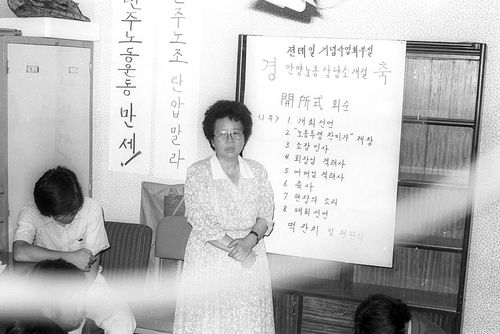 민주노동운동 만세
민주노조 탄압말라
전태일 기념사업회부설
경 안양노동상담소 개설 축
開所式 회순
<1부> 1. 개회선언
2. "노동투쟁 찬미가" 제창
3. 소장인사
4. 회장님 격려사
5. 어머님 격려사
6. 축사
7. 현장의 소리
8. 폐회선언
떡잔치 및